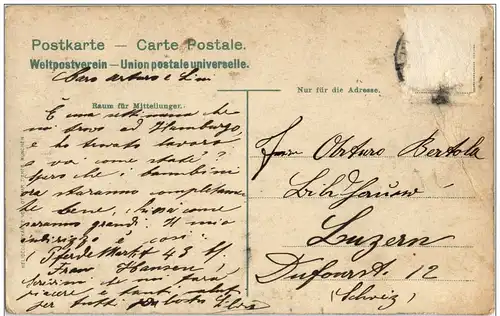 Postkarte — Carte Postale.
Weltpostverein — Union postale universelle.
Caro Arturo e Lini
Raum für Mitteilungen.
Nur für die Adresse.
È una settimana che
mi trovo ad Hamburgo,
e ho trovato lavoro
e voi come state?
spero che i bambini
ora staranno completamen
te bene, chissà come
saranno grandi. Il mio
indirizzo è così:
Pferdemarkt 43
Frau Hansen
se mi fara
piacere e tanti saluti
per tutti
Herrn Arturo Bertola
Luzern
Dufourst. 12
(Schweiz)